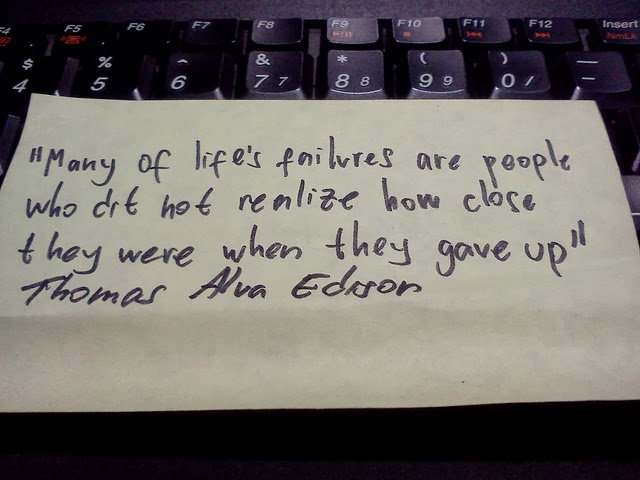 F4 F5 F6 F7 F8 F9 F10 F11 F12 Insert
NmLk
$ % ^ & * ( ) —
4 5 6 7 7 8 8 9 9 0 / -
"Many of life's failures are people
who dit not realize how close
they were when they gave up"
Thomas Alva Edison